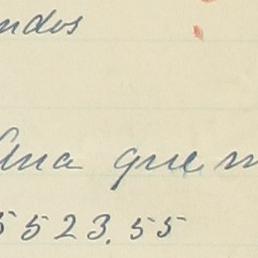 ndos
Ana que m
5523.55